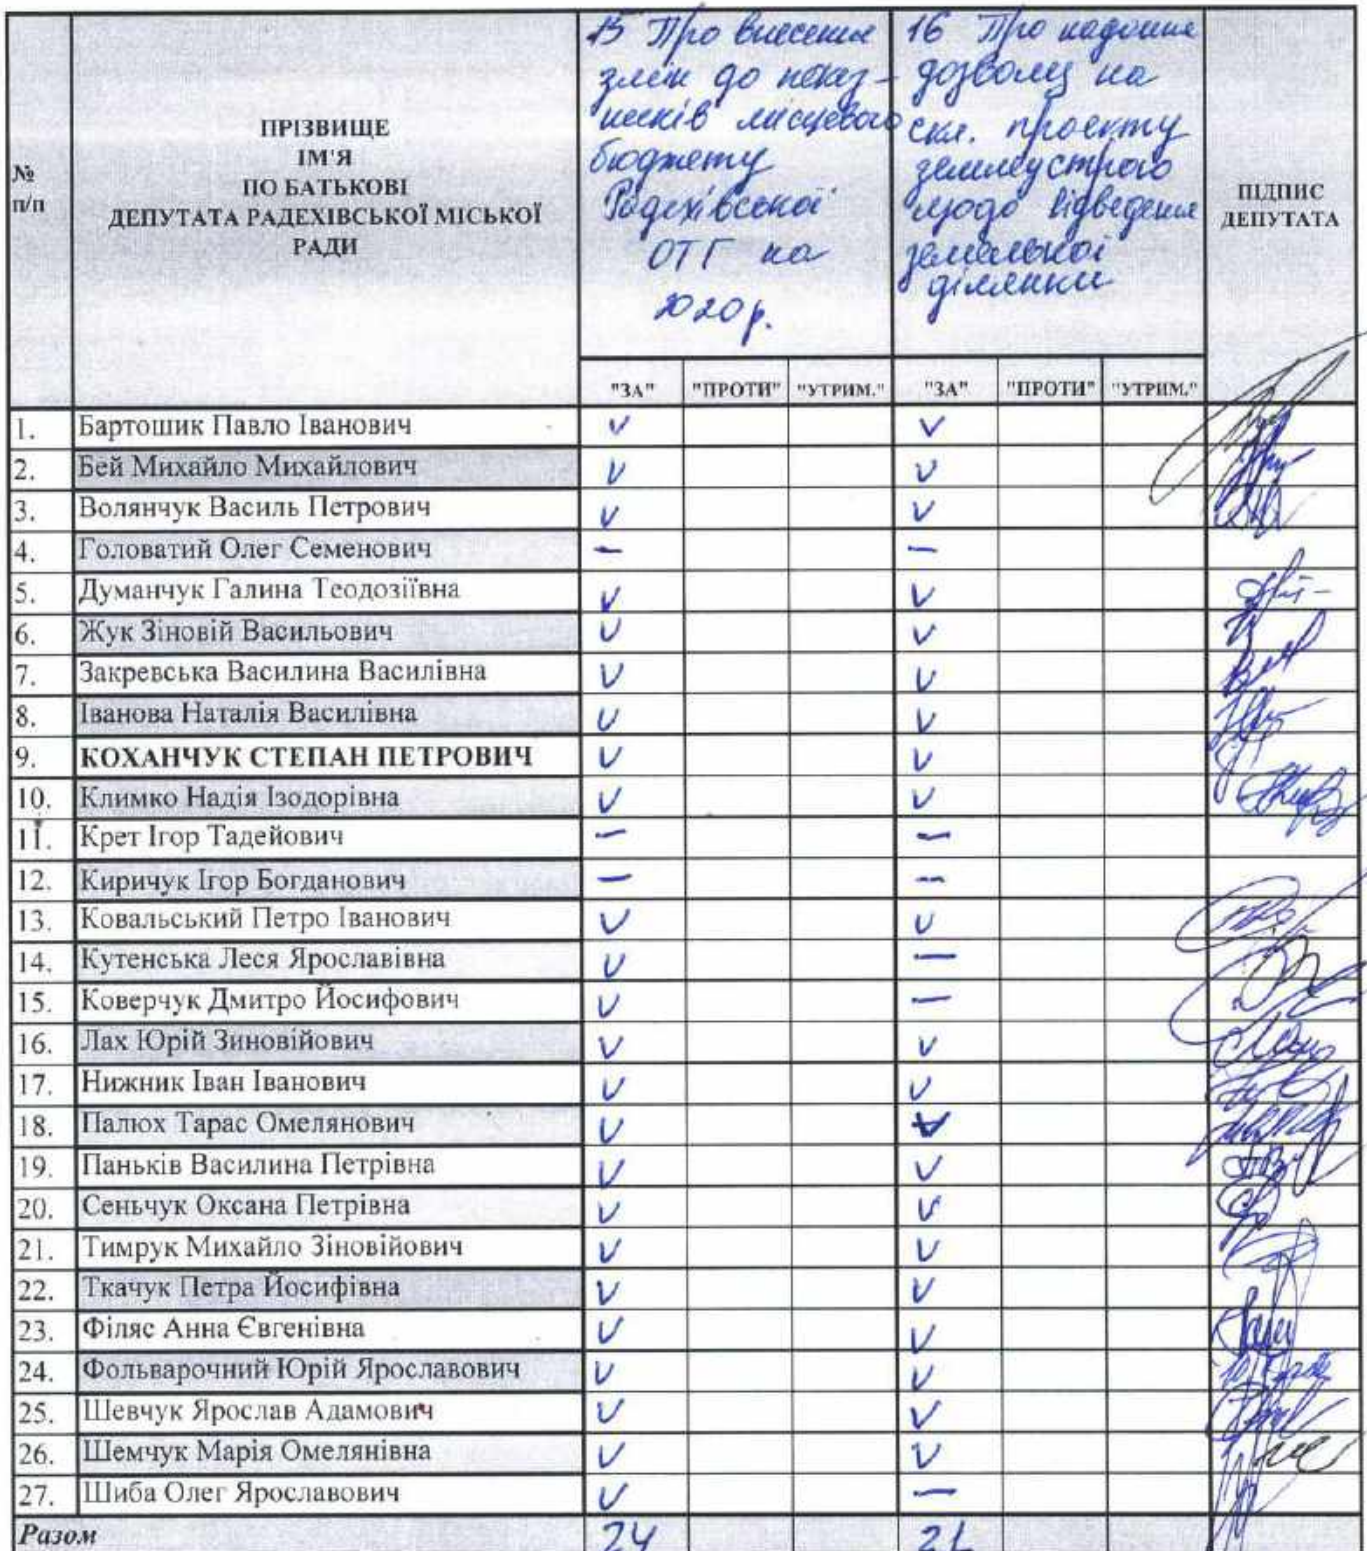 №
п/п
ПРІЗВИЩЕ
ІМ'Я
ПО БАТЬКОВІ
ДЕПУТАТА РАДЕХІВСЬКОЇ МІСЬКОЇ
РАДИ
15 Про внесення
змін до показ-
ників місцевого
бюджету
Радехівської
ОТГ на
2020р.
16 Про надання
дозволу на
скл. проекту
землеустрою
щодо відведення
земельної
ділянки
ПІДПИС
ДЕПУТАТА
"ЗА" "ПРОТИ" "УТРИМ." "ЗА" "ПРОТИ" "УТРИМ."
1. Бартошик Павло Іванович v v
2. Бей Михайло Михайлович v v
3. Волянчук Василь Петрович v v
4. Головатий Олег Семенович – –
5. Думанчук Галина Теодозіївна v v
6. Жук Зіновій Васильович v v
7. Закревська Василина Василівна v v
8. Іванова Наталія Василівна v v
9. КОХАНЧУК СТЕПАН ПЕТРОВИЧ v v
10. Климко Надія Ізодорівна v v
11. Крет Ігор Тадейович – –
12. Киричук Ігор Богданович – –
13. Ковальський Петро Іванович v v
14. Кутенська Леся Ярославівна v –
15. Коверчук Дмитро Йосифович v –
16. Лах Юрій Зиновійович v v
17. Нижник Іван Іванович v v
18. Палюх Тарас Омелянович v v
19. Паньків Василина Петрівна v v
20. Сеньчук Оксана Петрівна v v
21. Тимрук Михайло Зіновійович v v
22. Ткачук Петра Йосифівна v v
23. Філяс Анна Євгенівна v v
24. Фольварочний Юрій Ярославович v v
25. Шевчук Ярослав Адамович v v
26. Шемчук Марія Омелянівна v v
27. Шиба Олег Ярославович v –
Разом 24 21